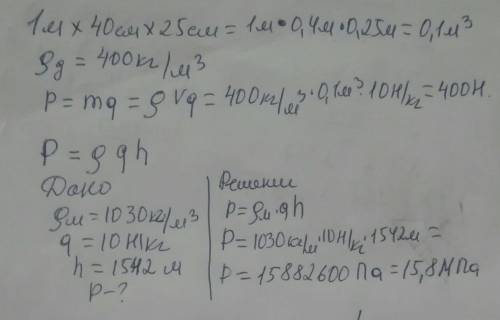 1м × 40см × 25см = 1м · 0,4м · 0,25м = 0,1м³
ρg = 400кг/м³
P = mg = ρVg = 400кг/м³ · 0,1м³ · 10Н/кг = 400Н.
P = ρgh
Дано
ρм = 1030кг/м³
g = 10Н/кг
h = 1542 м
P - ?
Решении
P = ρм · gh
P = 1030кг/м³ · 10Н/кг · 1542м =
P = 15882600 Па = 15,8МПа